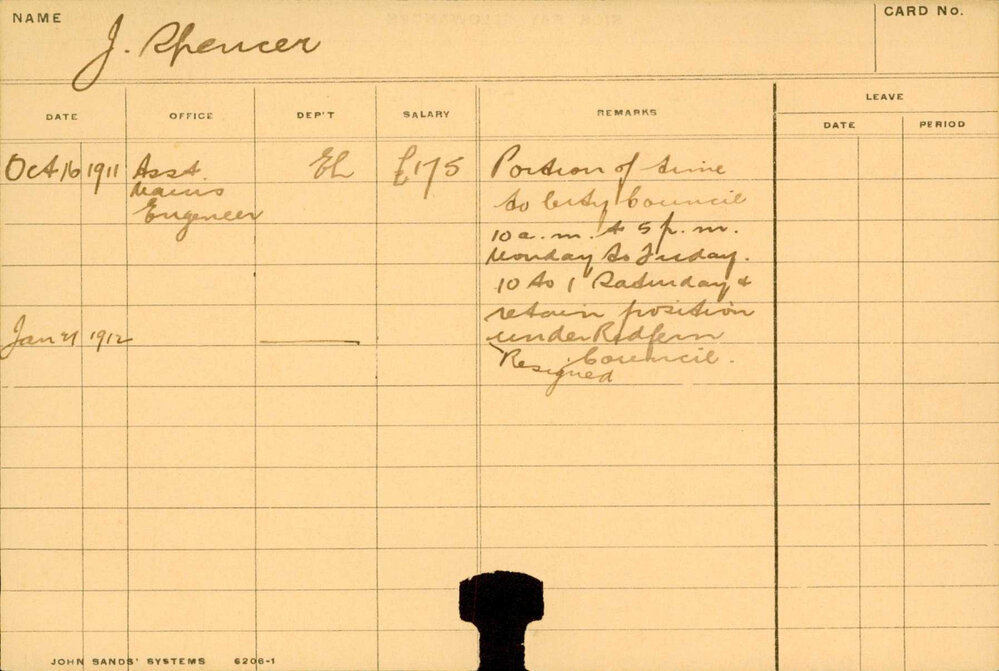 NAME
J. Spencer
CARD No.
DATE OFFICE DEP'T SALARY REMARKS LEAVE
DATE PERIOD
Oct 16 1911 Asst. EL £175 Portion of time
Mains to City Council
Engeneer
10 a.m. to 5 p.m.
Monday to Friday.
10 to 1 Saturday &
retain position
Jan 1912 under Redfern
Council.
Resigned
JOHN SANDS' SYSTEMS 6206-1